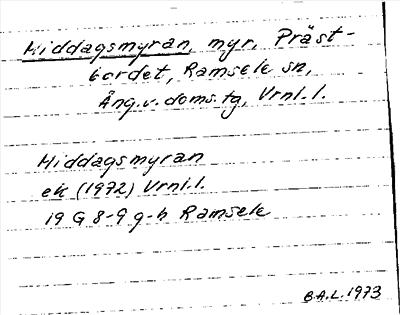 Middagsmyran, myr, Präst-
bordet, Ramsele sn,
Ång.v.doms.tg, Vrnl.l.
Middagsmyran
ek (1972) Vrnl.l.
19 G 8-9 g-h Ramsele
B.A.L. 1973